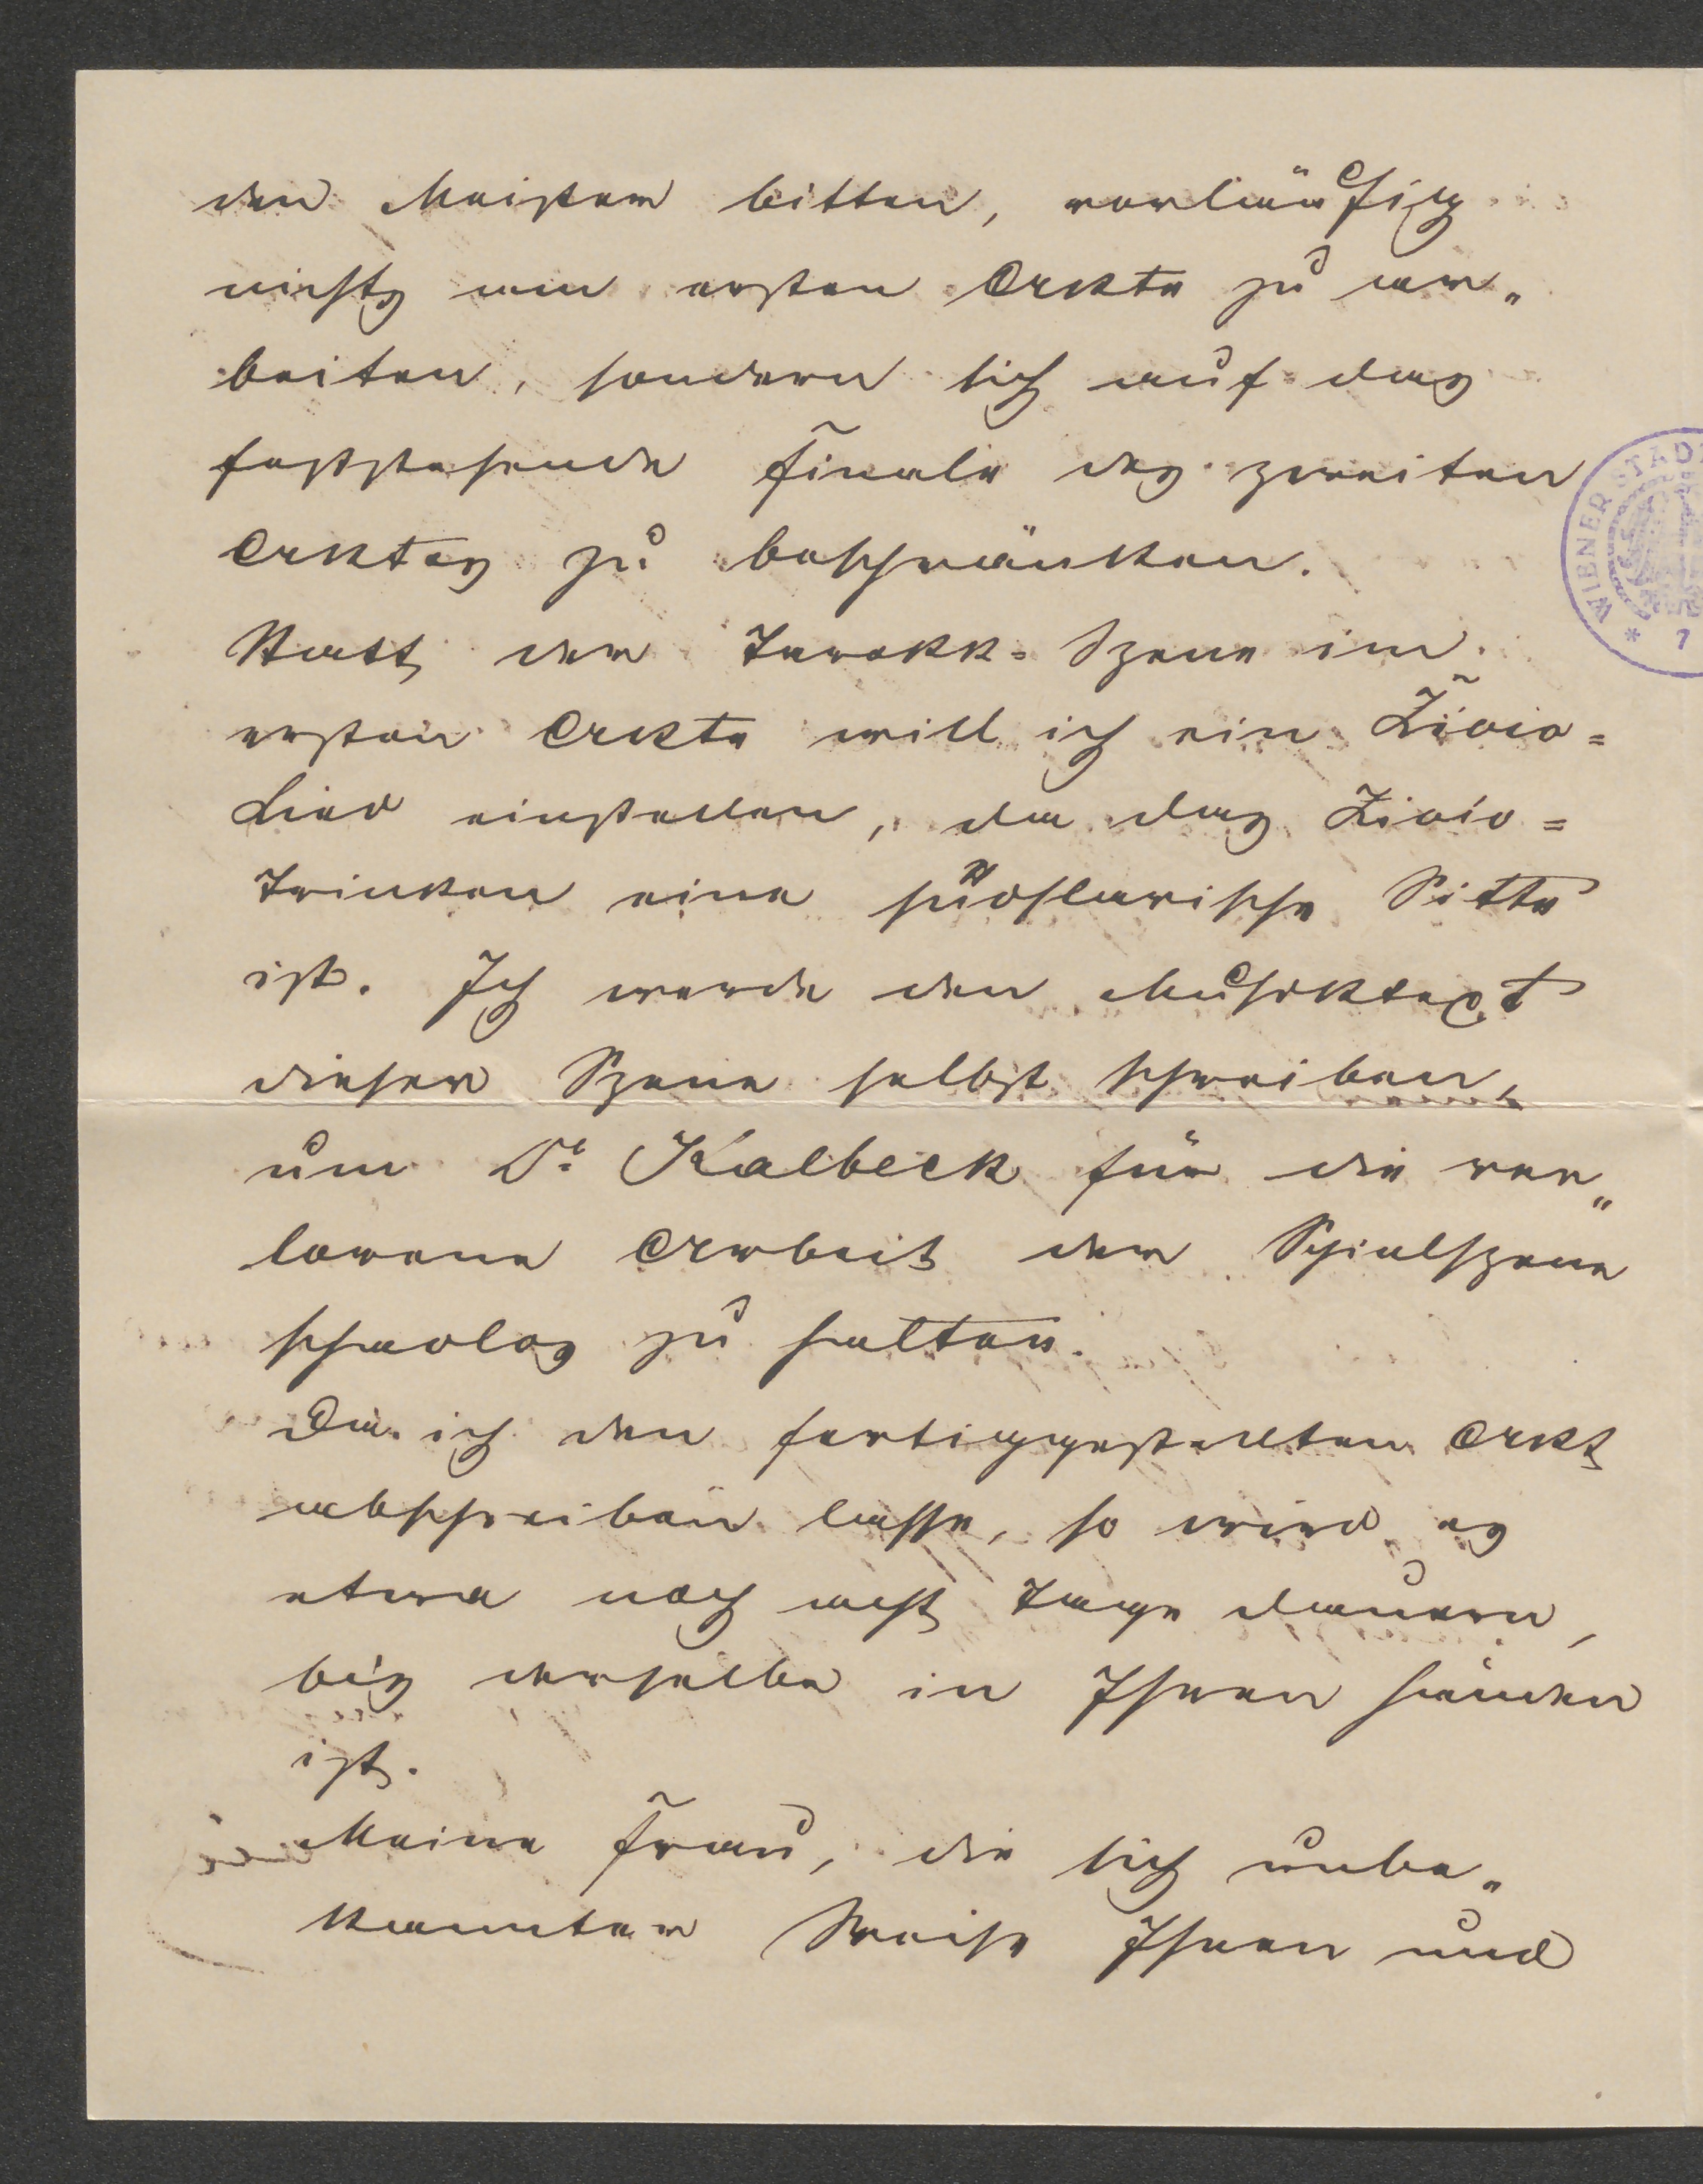 den Meister bitten, vorläufig
nichts am ersten Akte zu ar„
beiten, sondern sich auf das
feststehende Finale des zweiten
Aktes zu beschränken.
Statt der Tarokk-Szene im
ersten Akte will ich ein Živio=
Lied einstellen, da das Živio=
Trinken eine südslavische Sitte
ist. Ich werde den Musiktext
dieser Szene selbst schreiben,
um Dr. Kalbeck für die ver„
lorene Arbeit der Spielszene
schadlos zu halten.
Da ich den fertiggestellten Akt
abschreiben lasse, so wird es
etwa noch acht Tage dauern,
bis derselbe in Ihren Händen
ist.
Meine Frau, die sich unbe„
kannter Weise Ihnen und
WIENER STADT
* 1